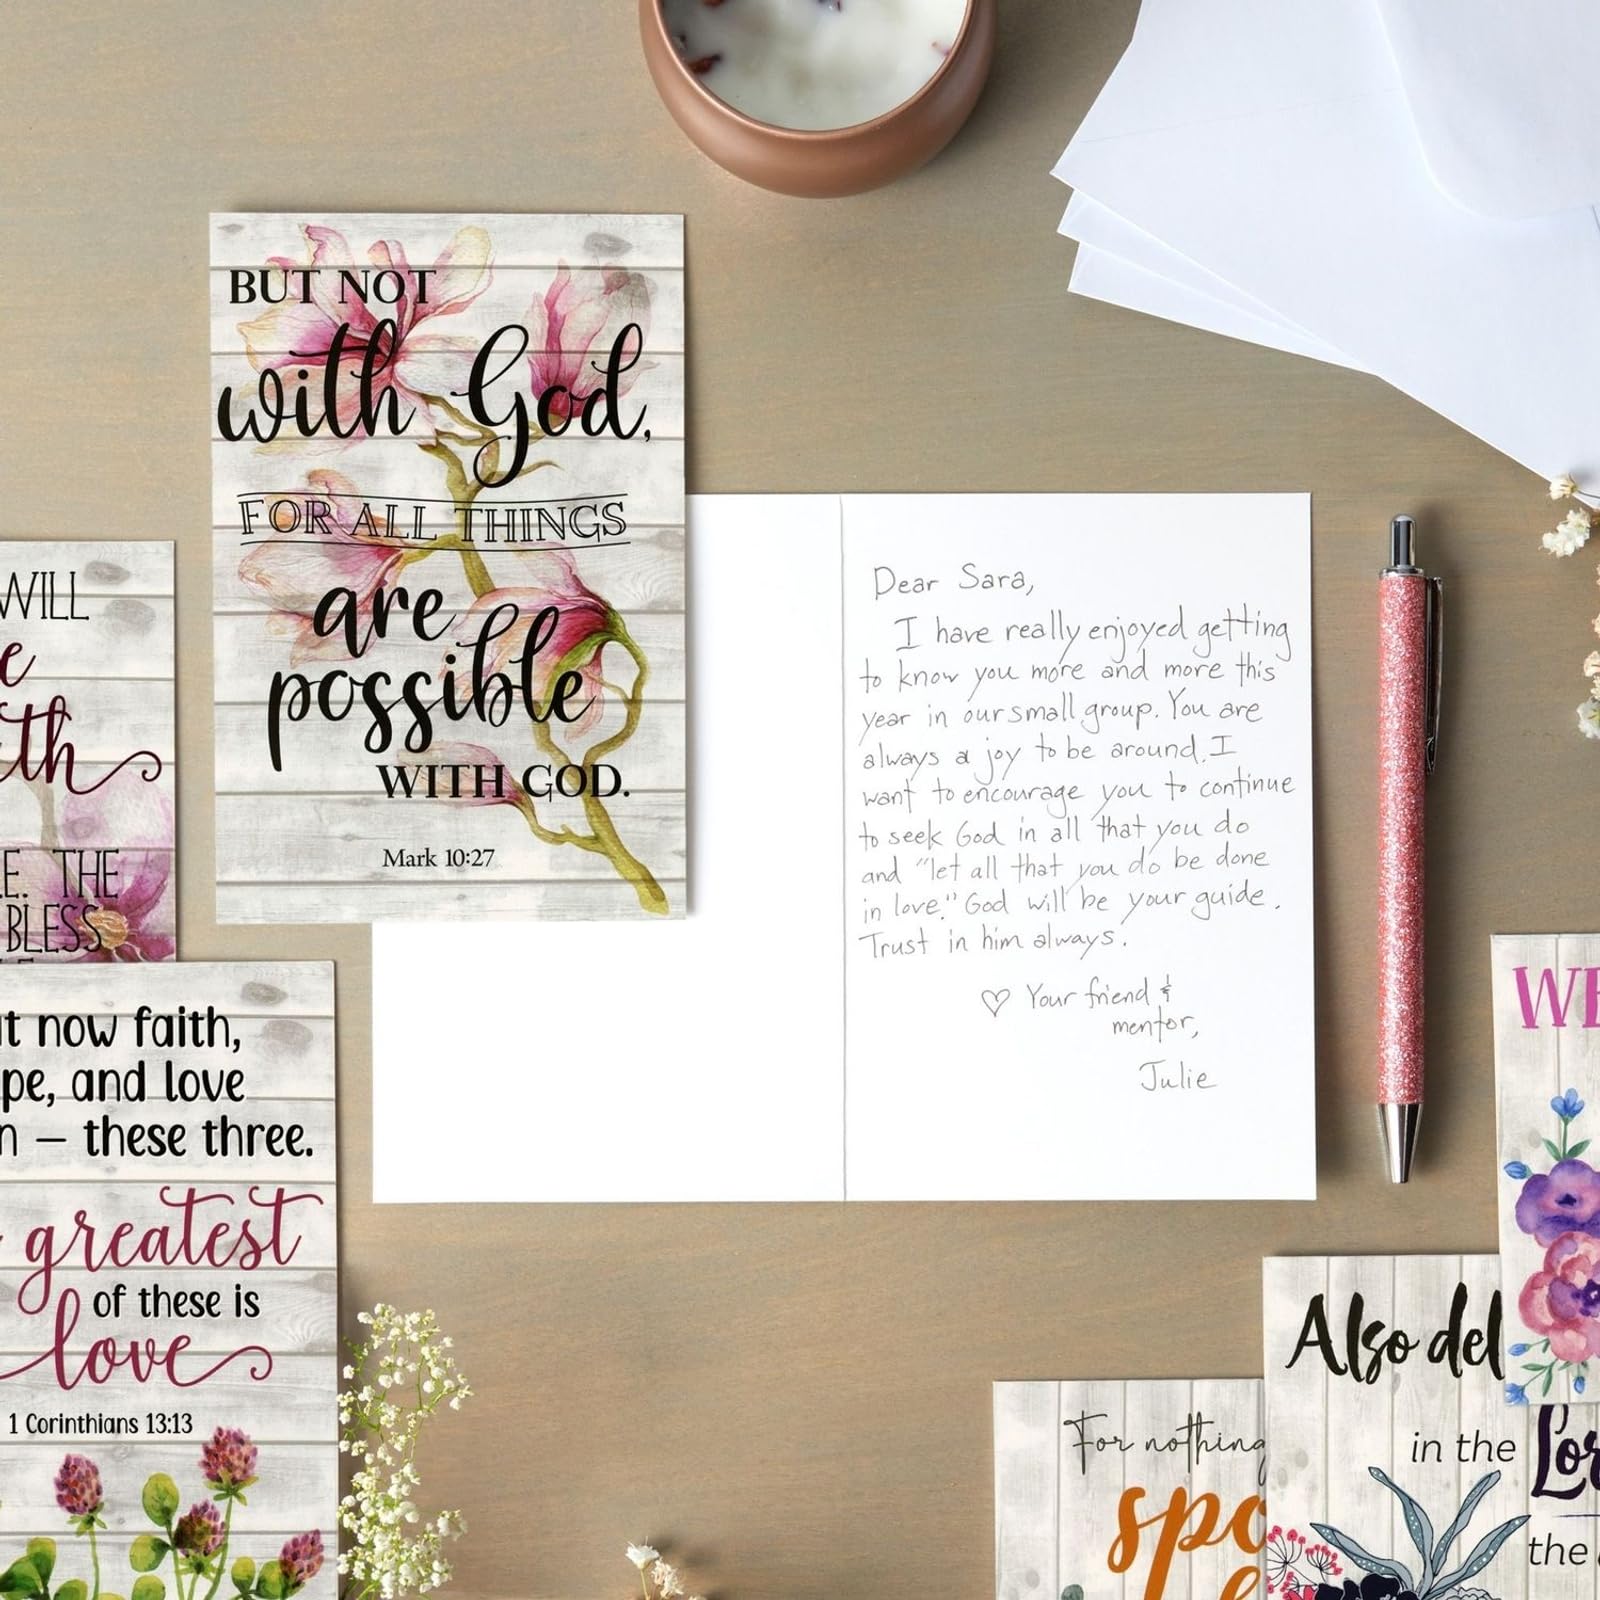 BUT NOT
with God,
FOR ALL THINGS
are
possible
WITH GOD.
Mark 10:27
Dear Sara,
I have really enjoyed getting
to know you more and more this
year in our small group. You are
always a joy to be around. I
want to encourage you to continue
to seek God in all that you do
and "let all that you do be done
in love." God will be your guide.
Trust in him always.
♡ Your friend &
mentor,
Julie
WILL
THE
BLESS
now faith,
and love
– these three.
greatest
of these is
love
1 Corinthians 13:13
For nothing
Also del
in the
the